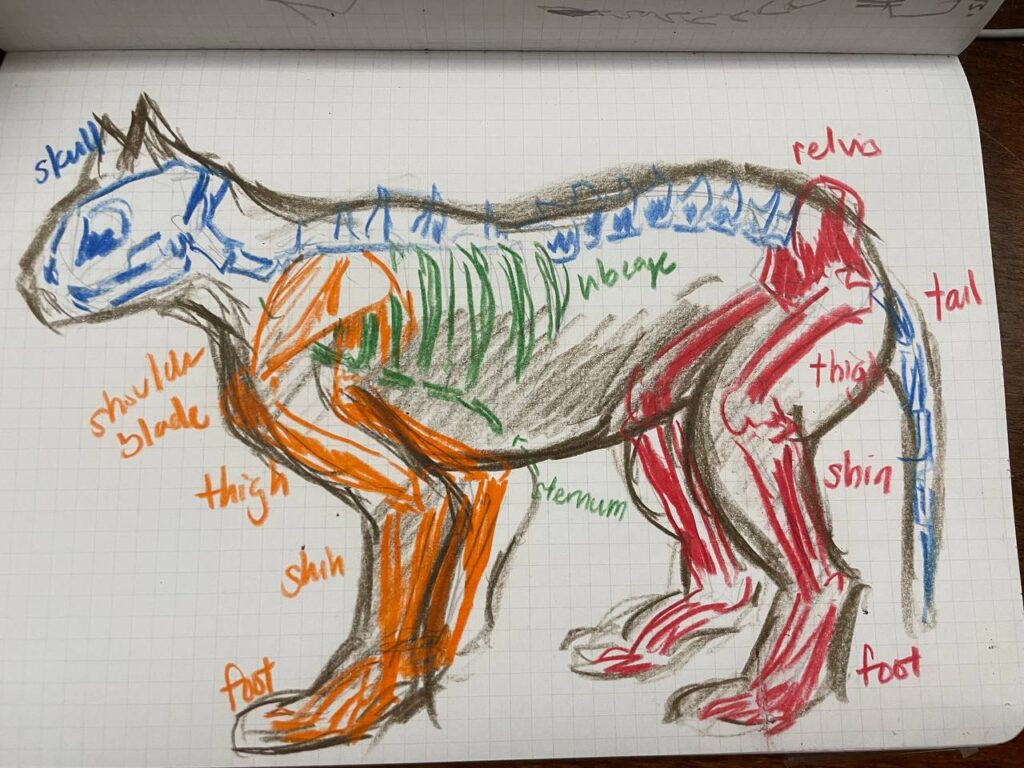 skull
relvis
ribcage
tail
shoulder
blade
thigh
thigh
shin
sternum
shin
foot
foot